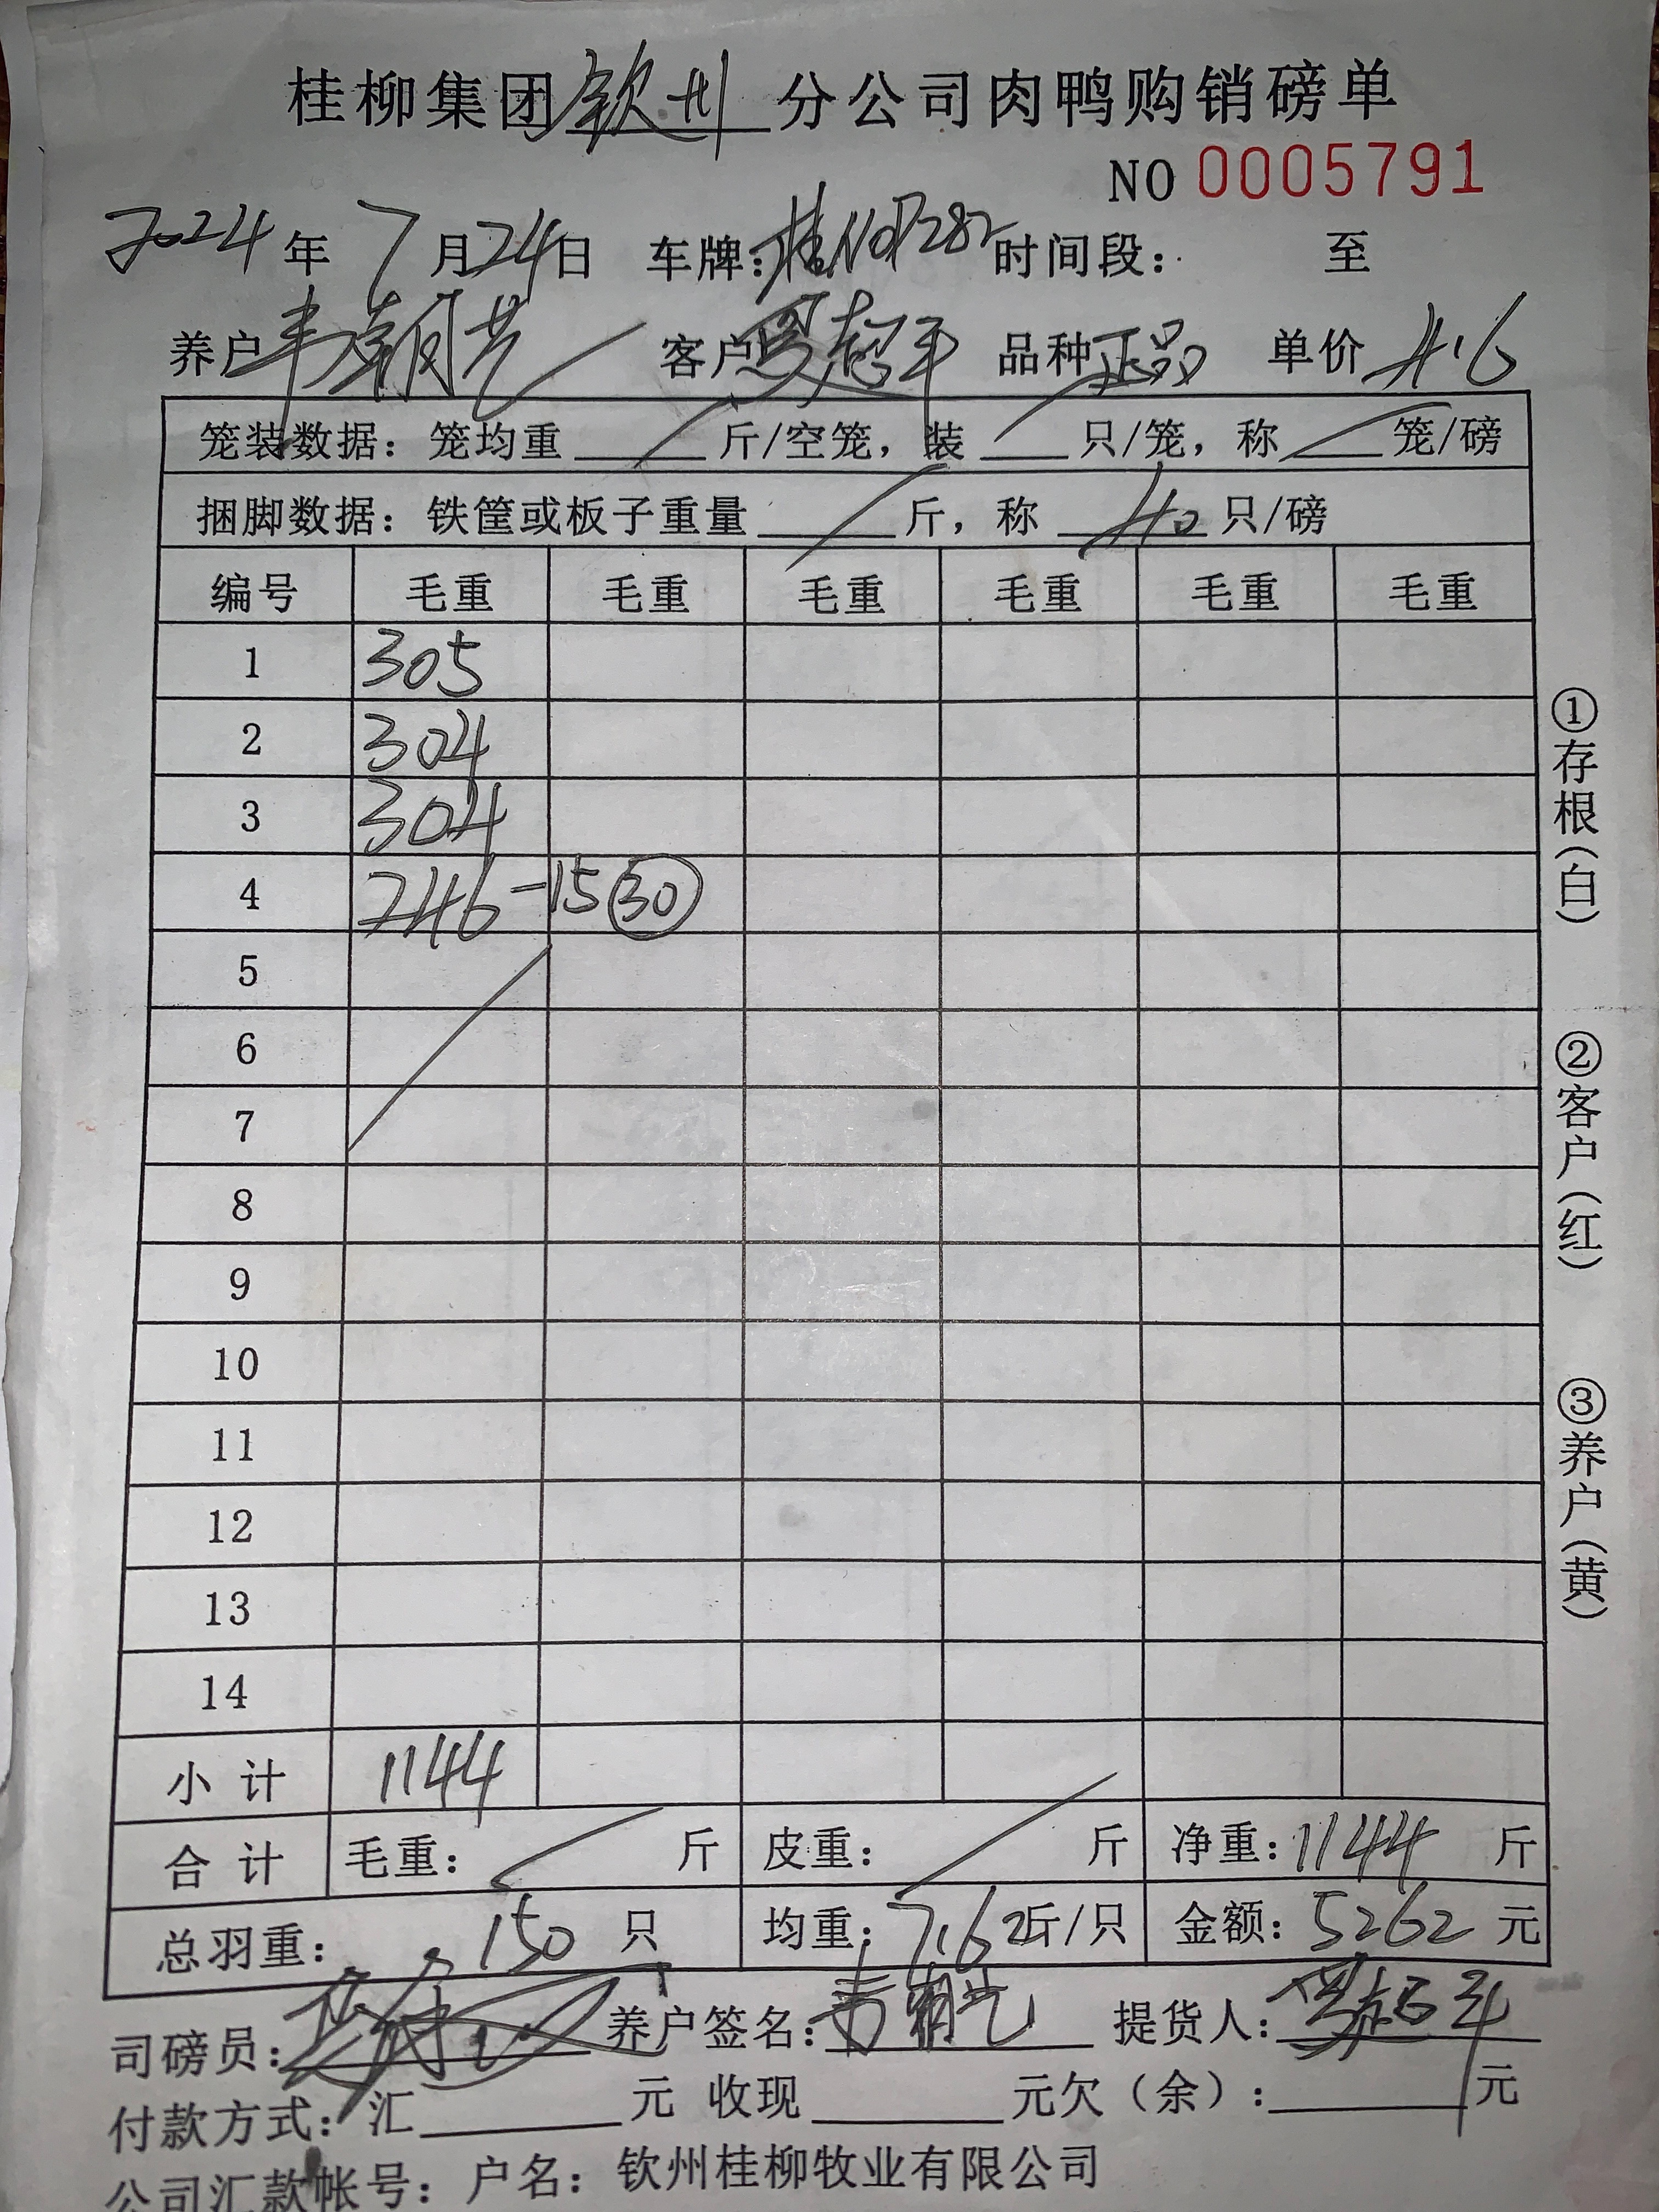 桂柳集团钦州分公司肉鸭购销磅单
NO 0005791
2024年7月24日 车牌: 时间段: 至
养户 客户罗超平 品种正品 单价4.6
笼装数据: 笼均重 斤/空笼, 装 只/笼, 称 笼/磅
捆脚数据: 铁筐或板子重量 斤, 称 40 只/磅
编号 毛重 毛重 毛重 毛重 毛重 毛重
1 305
2 304
3 304
4 246-15 30
5
6
7
8
9
10
11
12
13
14
小计 1144
合计 毛重: 斤 皮重: 斤 净重: 1144 斤
总羽重: 150 只 均重: 7.62斤/只 金额: 5262 元
司磅员: 养户签名: 提货人: 罗超平
付款方式: 汇 元 收现 元欠(余): 元
公司汇款帐号: 户名: 钦州桂柳牧业有限公司
①存根(白)
②客户(红)
③养户(黄)